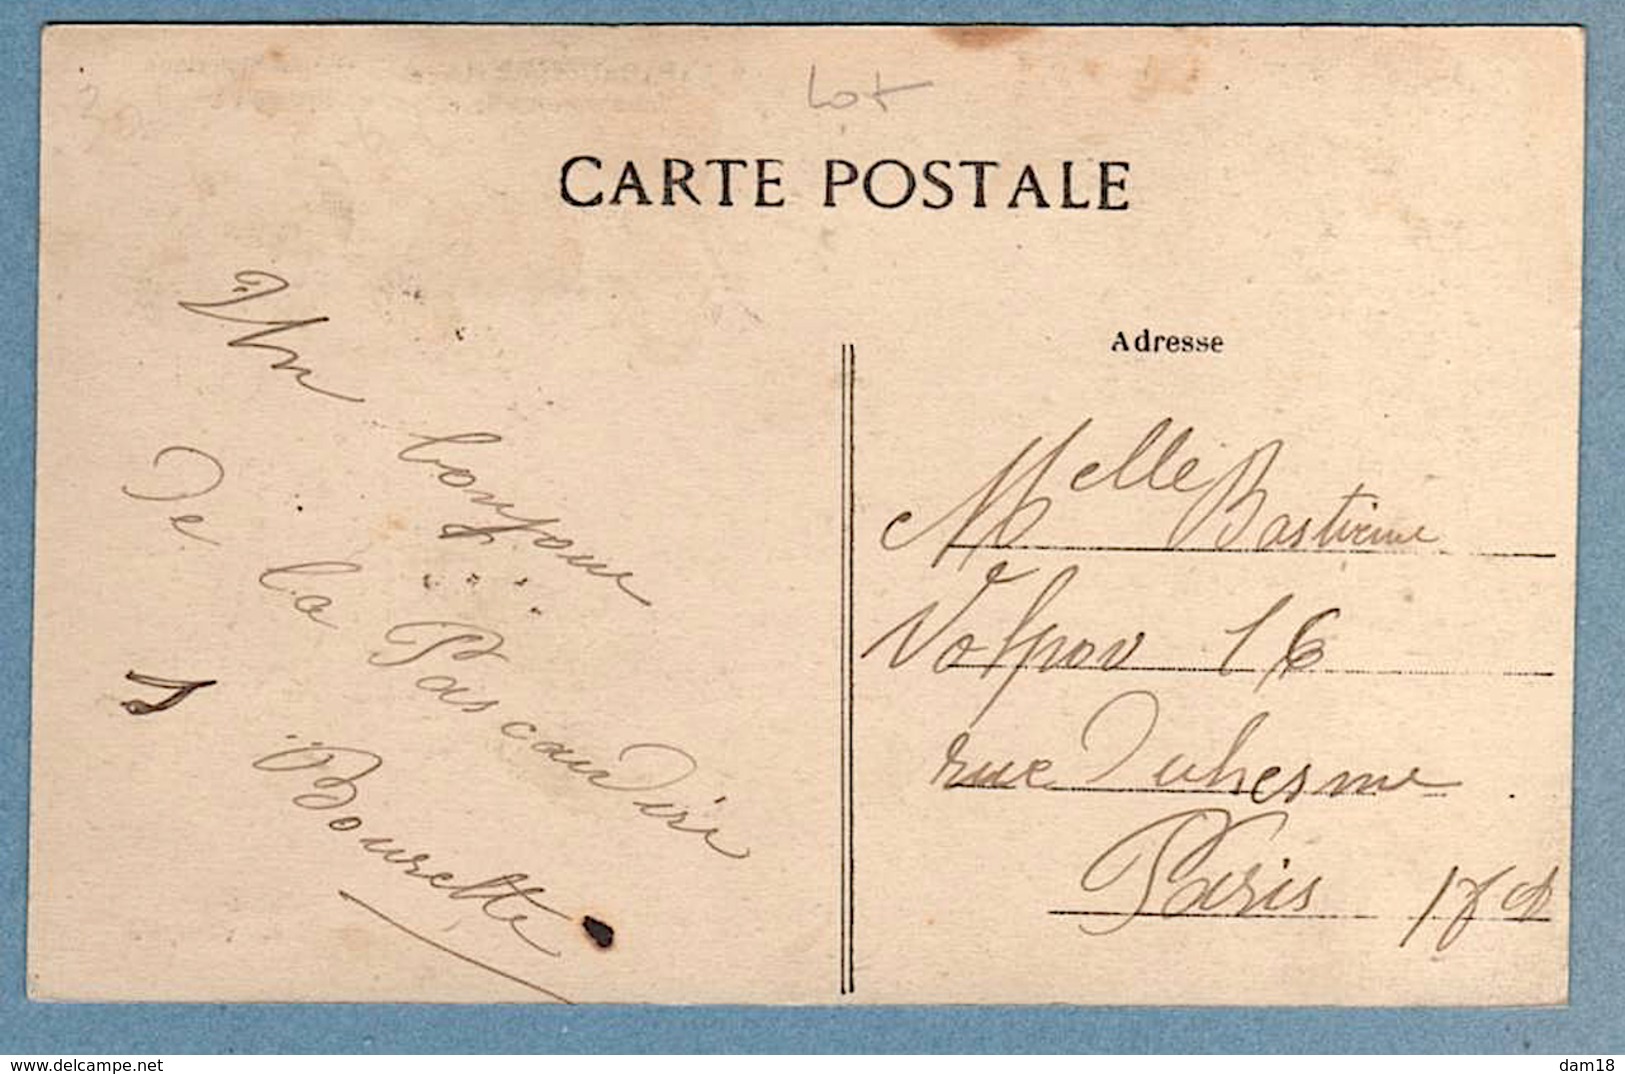 Lot
CARTE POSTALE
Un bonjour
De la Pascaudiri
Bourette
Adresse
Melle Bastienne
Volpov 16
rue Duhesme
Paris
www.delcampe.net
dam18